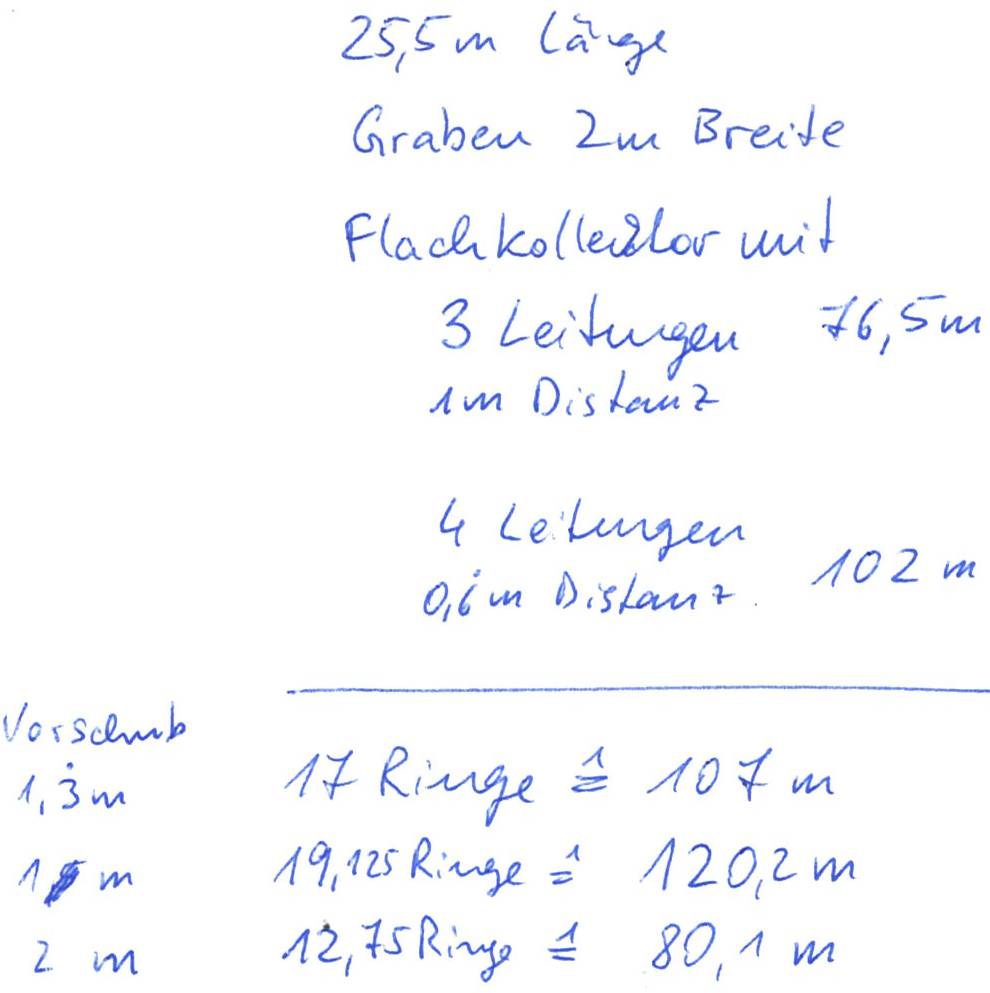 25,5m Länge
Graben 2m Breite
Flachkollektor mit
3 Leitungen 76,5m
1m Distanz
4 Leitungen
0,6m Distanz 102 m
Vorschub
1,3m 17 Ringe ≙ 107 m
1 m 19,125 Ringe ≙ 120,2 m
2 m 12,75 Ringe ≙ 80,1 m